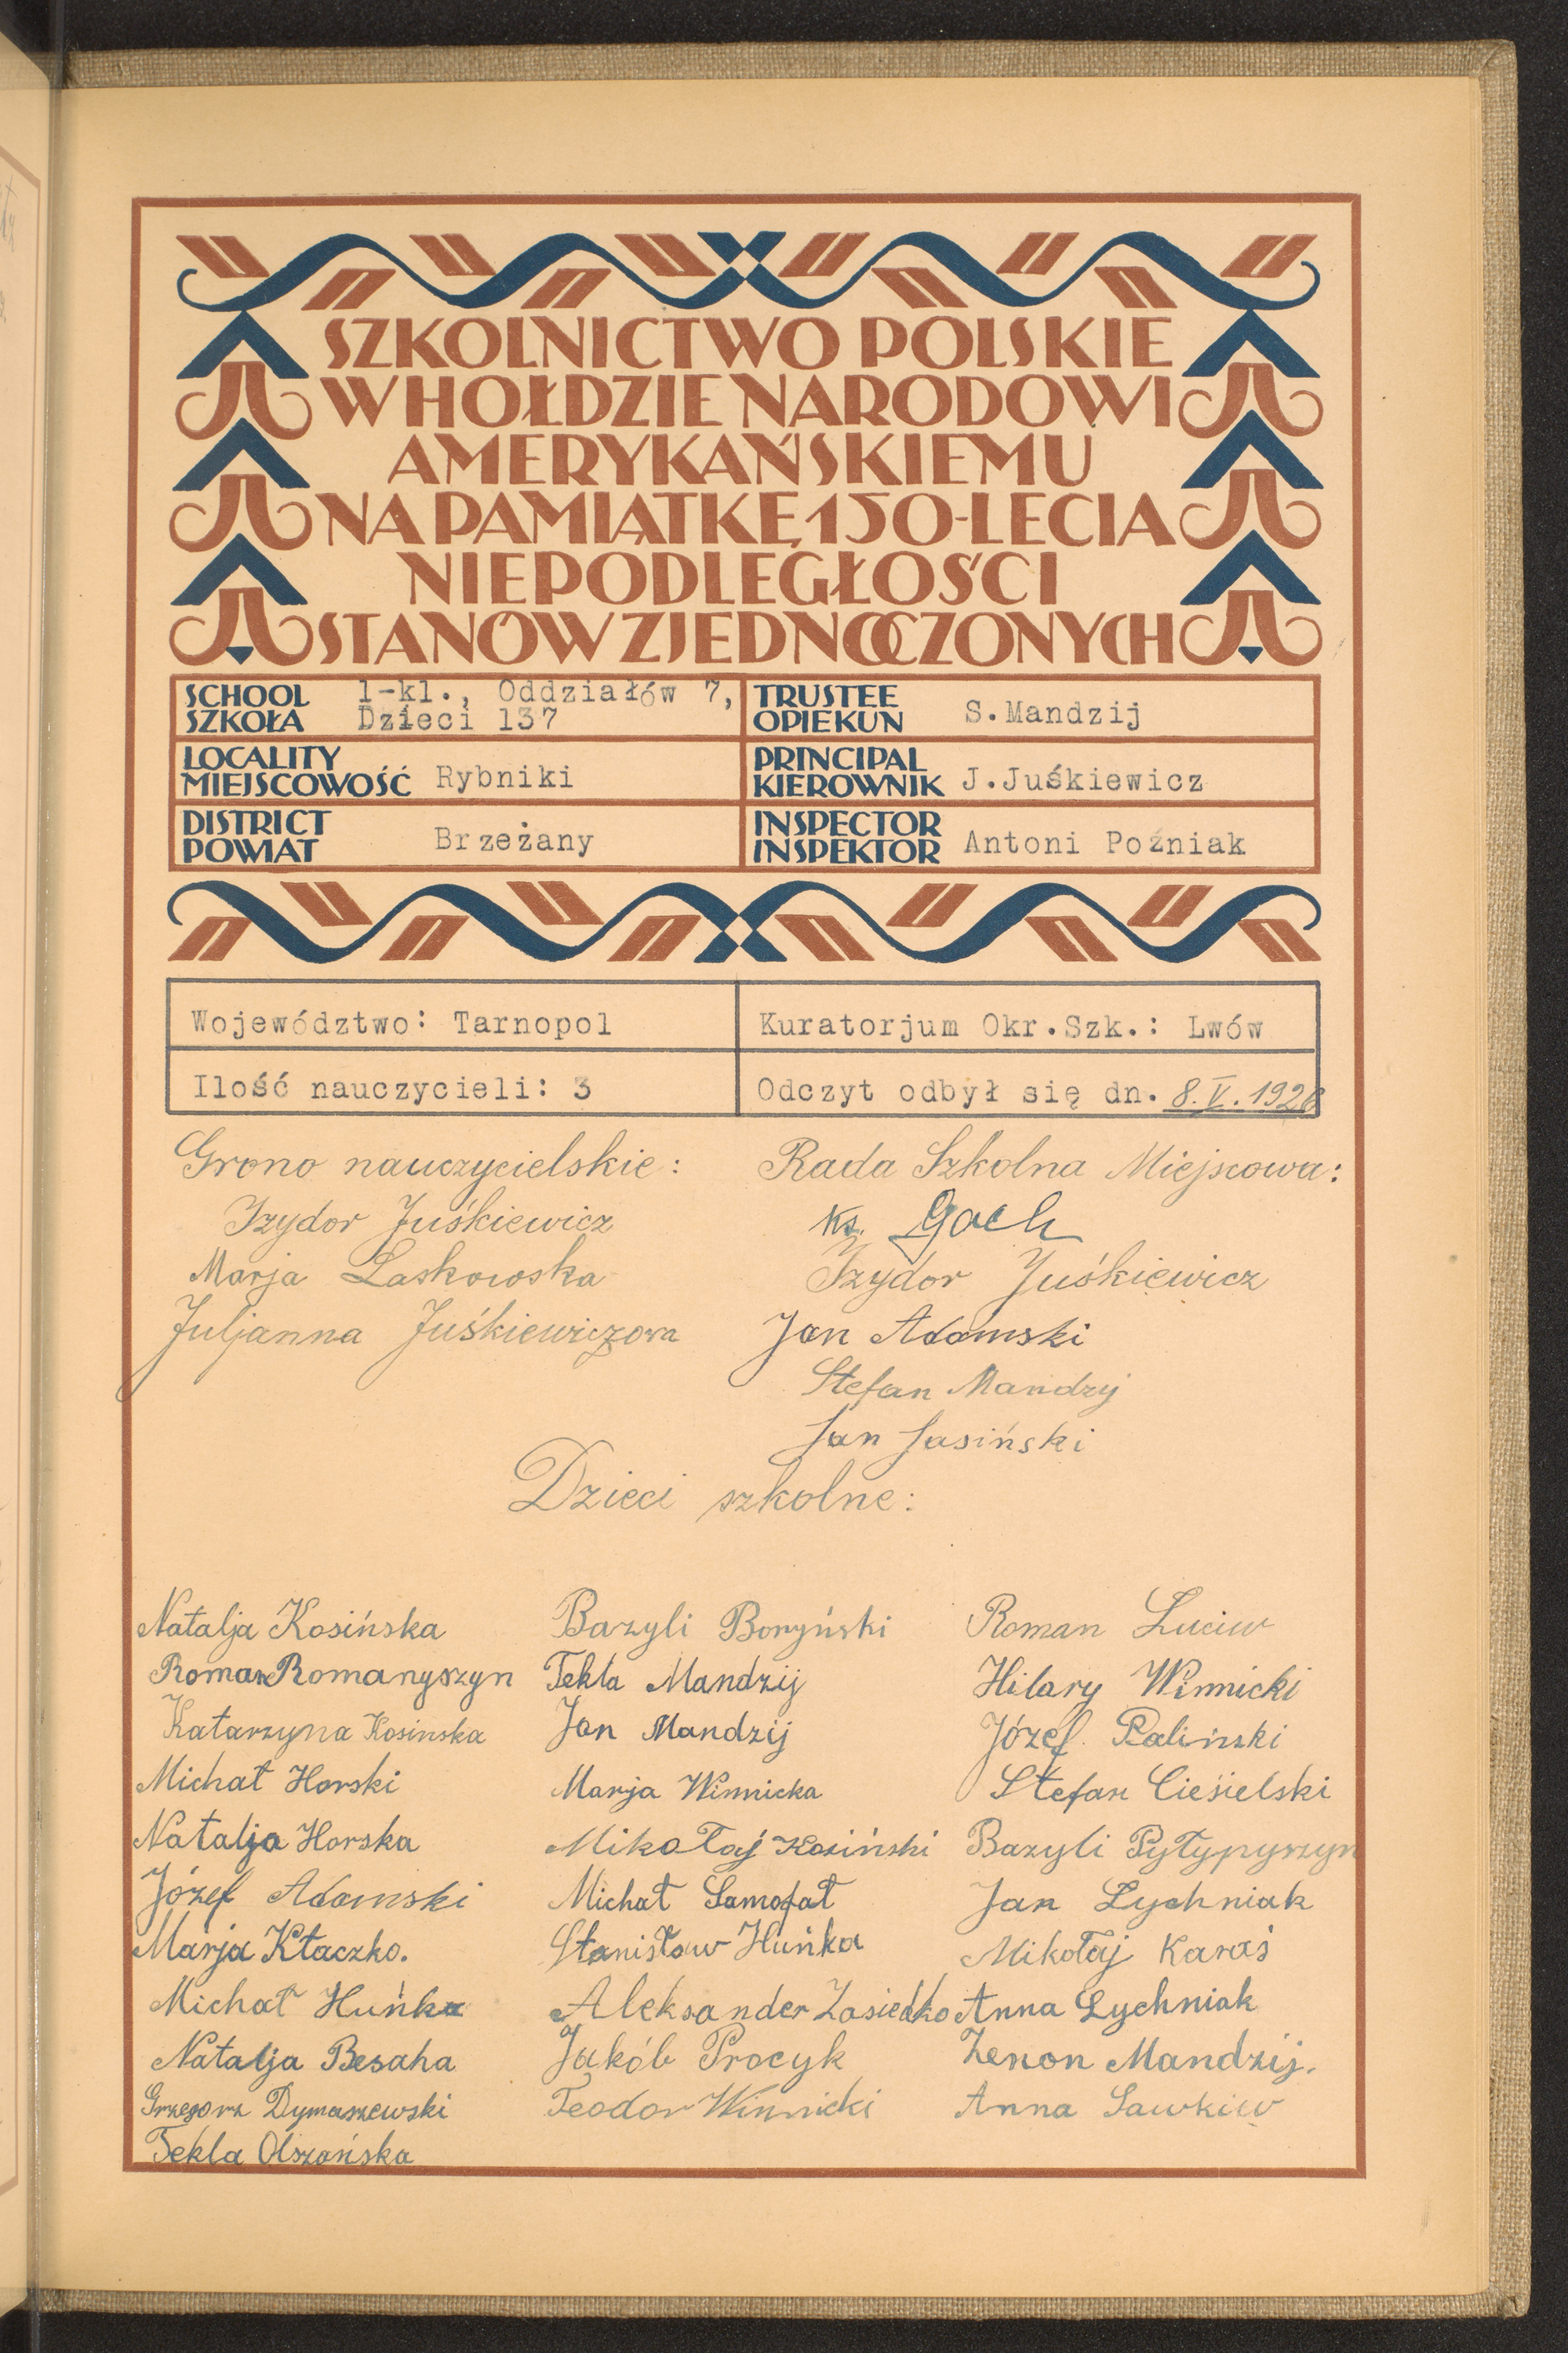 SZKOLNICTWO POLSKIE
W HOŁDZIE NARODOWI
AMERYKAŃSKIEMU
NA PAMIĄTKĘ 150-LECIA
NIEPODLEGŁOŚCI
STANÓW ZJEDNOCZONYCH
SCHOOL
SZKOŁA
1-kl., Oddziałów 7,
Dzieci 137
TRUSTEE
OPIEKUN
S.Mandzij
LOCALITY
MIEJSCOWOŚĆ
Rybniki
PRINCIPAL
KIEROWNIK
J.Juśkiewicz
DISTRICT
POWIAT
Brzeżany
INSPECTOR
INSPEKTOR
Antoni Poźniak
Województwo: Tarnopol
Kuratorjum Okr.Szk.: Lwów
Ilość nauczycieli: 3
Odczyt odbył się dn. 8.V.1926
Grono nauczycielskie:
Izydor Juśkiewicz
Marja Laskowska
Juljanna Juśkiewiczowa
Rada Szkolna Miejscowa:
Ks. Gach
Izydor Juśkiewicz
Jan Adamski
Stefan Mandzij
Jan Jasiński
Dzieci szkolne:
Natalja Kosińska
Roman Romanyszyn
Katarzyna Kosinska
Michał Horski
Natalja Horska
Józef Adamski
Marja Kłaczko.
Michał Huńka
Natalja Besaha
Grzegorz Dymaszewski
Tekla Olszańska
Bazyli Boryński
Tekla Mandzij
Jan Mandzij
Marja Winnicka
Mikołaj Kosiński
Michał Samofał
Stanisław Huńka
Aleksander Zasiedko
Jakób Procyk
Teodor Winnicki
Roman Luciw
Hilary Winnicki
Józef Paliński
Stefan Ciesielski
Bazyli Pyłypyszyn
Jan Lychniak
Mikołaj Karaś
Anna Lychniak
Zenon Mandzij.
Anna Sawkiw